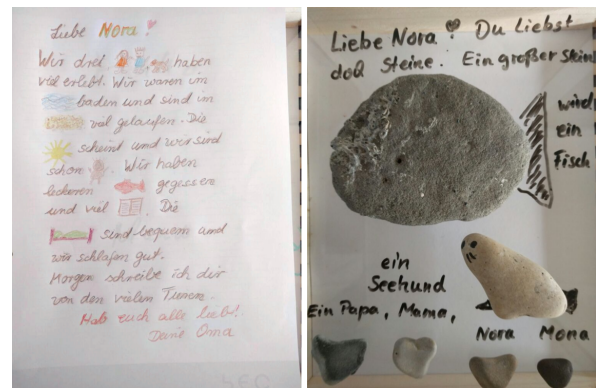 Liebe Nora!
Wir drei haben
viel erlebt. Wir waren im
baden und sind im
viel gelaufen. Die
scheint und wir sind
schon . Wir haben
leckeren gegessen
und viel . Die
sind bequem und
wir schlafen gut.
Morgen schreibe ich dir
von den vielen Tieren.
Hab euch alle lieb!
Deine Oma
Liebe Nora! Du liebst
doch Steine. Ein großer Stein
wird
ein
Fisch
ein
Seehund
Ein Papa, Mama,
Nora Mona